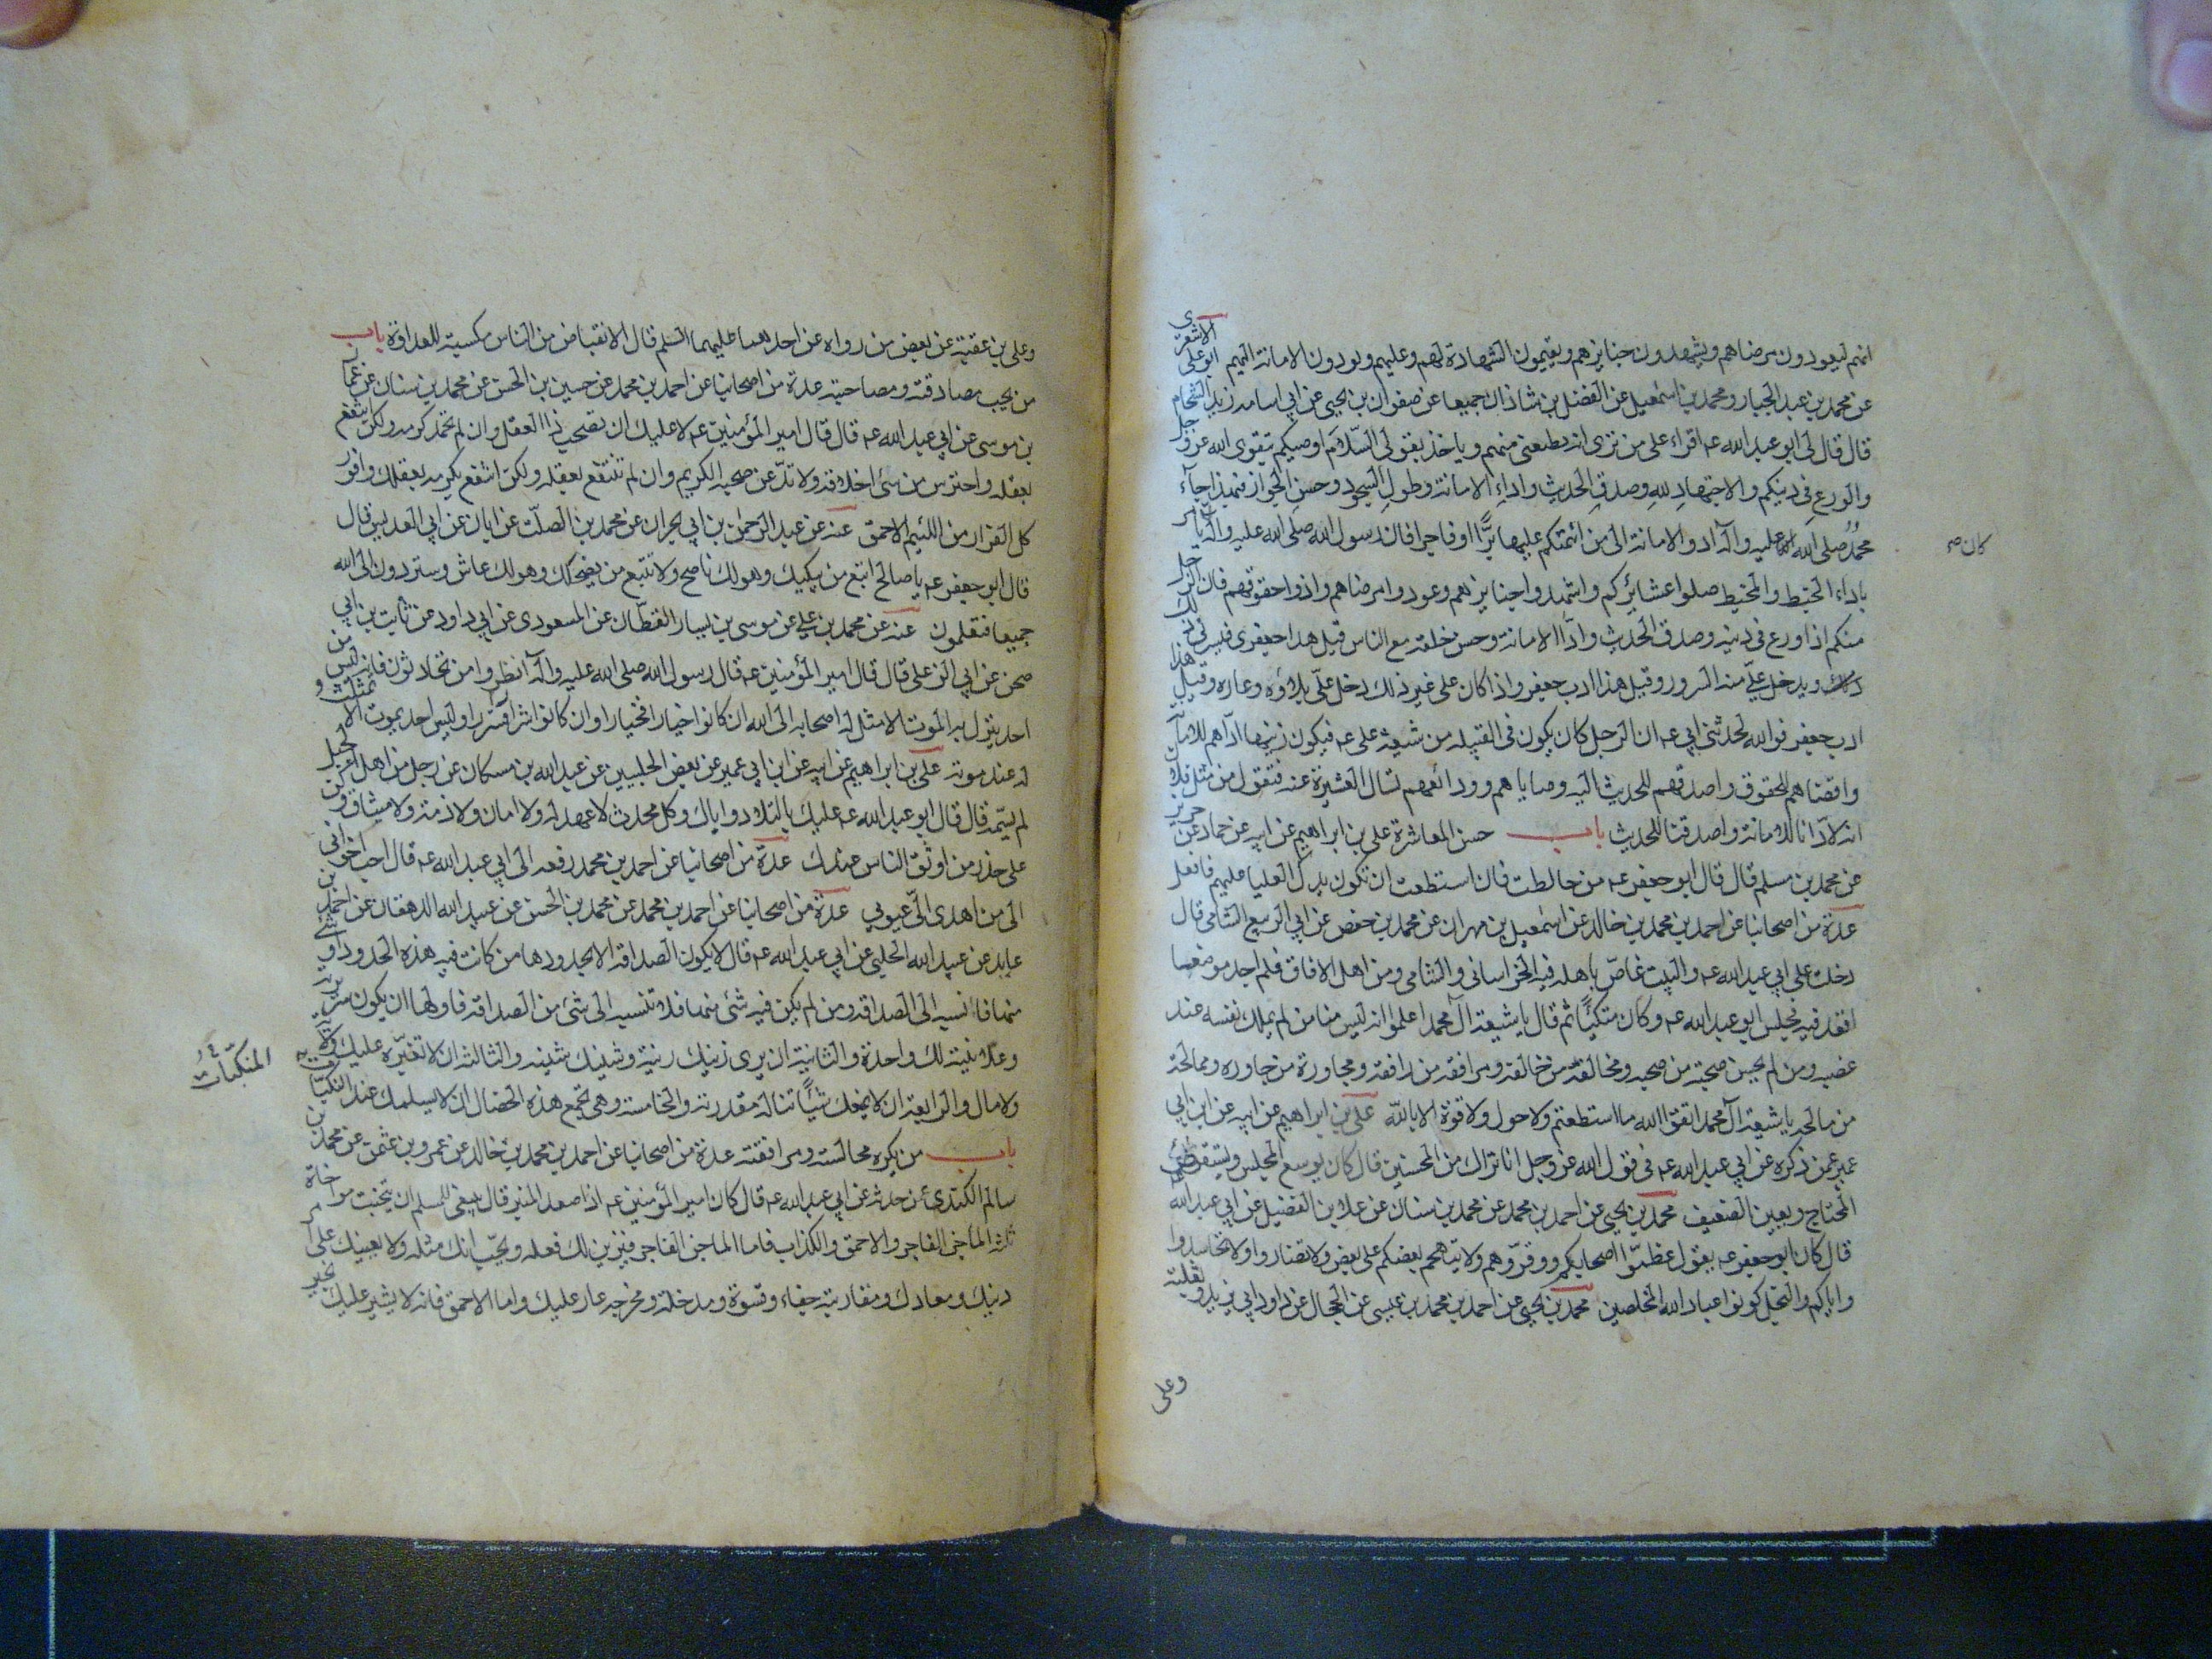 انهم ليعودون مرضاهم ويشهدون جنايزهم ويقيمون الشهادة لهم وعليهم ويودون الامانة اليهم ابو على الاشعرى
عن محمد بن عبد الجبار ومحمد بن اسمعيل عن الفضل بن شاذان جميعا عن صفوان بن يحيى عن ابى اسامه زيد الشحام
قال قال لى ابو عبد الله عه اقراء على من ترى انه يطيعنى منهم وياخذ بقولى السّلام اوصيكم بتقوى الله عز وجل
والورع فى دينكم والاجتهاد لله وصدق الحديث واداء الامانة وطول السجود وحسن الجوار فبهذا جآء
محمدٌ صلى الله عليه وآله ادو الامانة الى من ائتمنكم عليها برًّا او فاجرا فان رسول الله صلى الله عليه وآله يأمر
كان صح
باداء الخيط والمخيط صلوا عشائركم واشهدوا جنايزهم وعودوا مرضاهم وادوا حقوقهم فان الرجل
منكم اذا ورع فى دينه وصدق الحديث وادّا الامانة وحسن خلقه مع الناس قيل هذا جعفرى فيسرنى ذلك
ويدخل علىّ منه السرور وقيل هذا ادب جعفر واذا كان على غير ذلك دخل علىّ بلاؤه وعاره وقيل هذا
ادب جعفر فوالله لحدثنى ابى عه ان الرجل كان يكون فى القبيله من شيعة على عه فيكون زينها ادآهم للامانة
واقضاهم للحقوق واصدقهم للحديث اليه وصاياهم وودائعهم تسال العشيرة عنه فتقول من مثل فلان
انه لآدّانا للامانة واصدقنا للحديث باب حسن المعاشرة على بن ابراهيم عن ابيه عن حماد عن حريز
عن محمد بن مسلم قال قال ابو جعفر عه من خالطت فان استطعت ان تكون يدك العليا عليهم فافعل
عدة من اصحابنا عن احمد بن محمد بن خالد عن اسمعيل بن مهران عن محمد بن حفص عن ابى الربيع الشامى قال
دخلت على ابى عبد الله عه والبيت غاصّ باهله فيه الخراسانى والشامى ومن اهل الافاق فلم اجد موضعا
اقعد فيه فجلس ابو عبد الله عه وكان متكيًا ثم قال يا شيعة آل محمد اعلموا انه ليس منا من لم يملك نفسه عند
غضبه ومن لم يحسن صحبة من صحبه ومخالقة من خالقه ومرافقة من رافقه ومجاورة من جاوره وممالحة
من مالحه يا شيعة آل محمد اتقوا الله ما استطعتم ولا حول ولا قوة الا بالله على بن ابراهيم عن ابيه عن ابن ابى
عمير عمن ذكره عن ابى عبد الله عه فى قول الله عز وجل انا نراك من المحسنين قال كان يوسع المجلس ويستقرض
المحتاج ويعين الضعيف محمد بن يحيى عن احمد بن محمد عن محمد بن سنان عن علا بن الفضيل عن ابى عبد الله عه
قال كان ابو جعفر عه يقول عظموا اصحابكم ووقروهم ولا يتهجم بعضكم على بعض ولا تضاروا ولا تحاسدوا
واياكم والبخل كونوا عباد الله المخلصين محمد بن يحيى عن احمد بن محمد بن عيسى عن الحجال عن داود ابى يزيد وثعلبة
وعلى
وعلى بن عقبة عن بعض من رواه عن احدهما عليهما السلم قال الانقباض من الناس مكسبة للعداوة باب
من يجب مصادقته ومصاحبته عدة من اصحابنا عن احمد بن محمد عن حسين بن الحسن عن محمد بن سنان عن عمار
بن موسى عن ابى عبد الله عه قال قال امير المؤمنين عه لا عليك ان تصحب ذا العقل وان لم تحمد كرمه ولكن انتفع
بعقله واحترس من سئ اخلاقه ولا تدعن صحبة الكريم وان لم تنتفع بعقله ولكن انتفع بكرمه بعقلك وافرر
كل الفرار من اللئيم الاحمق عنه عن عبد الرحمن بن ابى نجران عن محمد بن الصلت عن ابان عن ابى العديس قال
قال ابو جعفر عه يا صالح اتبع من يبكيك وهو لك ناصح ولا تتبع من يضحكك وهو لك غاش وستردون الى الله
جميعا فتعلمون عنه عن محمد بن على عن موسى بن يسار القطان عن المسعودى عن ابى داود عن ثابت بن ابى
صخر عن ابى الزعلى قال قال امير المؤمنين عه قال رسول الله صلى الله عليه وآله انظروا من تحادثون فانه ليس من
احد ينزل به الموت الا مثل له اصحابه الى الله ان كانوا خيارا فخيارا وان كانوا شرارا فشرارا وليس احد يموت الا تمثلت
له عند موته على بن ابراهيم عن ابيه عن ابن ابى عمير عن بعض الحلبيين عن عبد الله بن مسكان عن رجل من اهل الجبل
لم يسمه قال قال ابو عبد الله عه عليك بالتلاد واياك وكل محدث لا عهد له ولا امان ولا ذمة ولا ميثاق وكن
على حذر من اوثق الناس عندك عدة من اصحابنا عن احمد بن محمد رفعه الى ابى عبد الله عه قال احب اخوانى
الى من اهدى الىّ عيوبى عدة من اصحابنا عن احمد بن محمد عن محمد بن الحسن عن عبيد الله الدهقان عن احمد بن
عايد عن عبيد الله الحلبى عن ابى عبد الله عه قال لا يكون الصداقة الا بحدودها من كانت فيه هذه الحدود او شئ
منها فانسبه الى الصداقة ومن لم يكن فيه شئ منها فلا تنسبه الى شئ من الصداقة فاولها ان يكون سريرته
وعلانيته لك واحدة والثانية ان يرى زينك زينه وشينك شينه والثالثة ان لا تغيره عليك ولاية
ولا مال والرابعة ان لا يمنعك شيئًا تناله مقدرته والخامسة وهى تجمع هذه الخصال ان لا يسلمك عند النكبات
باب من يكره مجالسته ومرافقته عدة من اصحابنا عن احمد بن محمد بن خالد عن عمرو بن عثمن عن محمد بن
سالم الكندى عن من حدثه عن ابى عبد الله عه قال كان امير المؤمنين عه اذا صعد المنبر قال ينبغى للمسلم ان يتجنب مواخاة
ثلثه الماجن الفاجر والاحمق والكذاب فاما الماجن الفاجر فيزين لك فعله ويحب انك مثله ولا يعينك على امر
دينك ومعادك ومقاربته جفاء وقسوة ومدخله ومخرجه عار عليك واما الاحمق فانه لا يشير عليك بخير